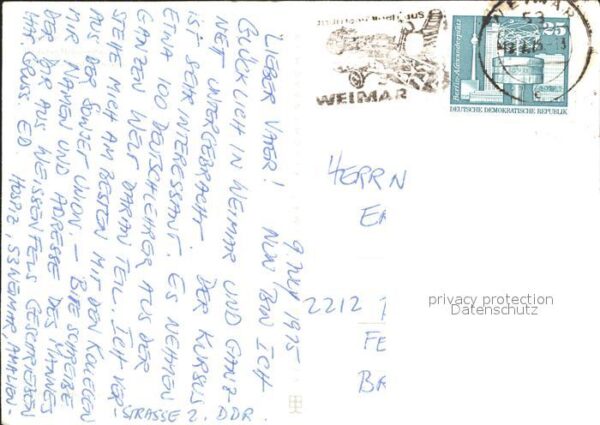 9. JULY 1975
LIEBER VATER! NUN BIN ICH
GLÜCKLICH IN WEIMAR UND GANZ
NETT UNTERGEBRACHT. DER KURSUS
IST SEHR INTERESSANT. ES NEHMEN
ETWA 100 DEUTSCHLEHRER AUS DER
GANZEN WELT DARAN TEIL. ICH VER-
STEHE MICH AM BESTEN MIT DEN KOLLEGEN
AUS DER SOWJET UNION. – BITE SCHREIBE
MIR NAMEN UND ADRESSE DES MANNES
DER DIR AUS WEISSENFELS GESCHRIEBEN
HAT. GRUSS ED. HOSPIZ, 53 WEIMAR, AMALIEN-
STRASSE 2. DDR.
WEIMAR
WEIMAR
53
25
Berlin-Alexanderplatz
DEUTSCHE DEMOKRATISCHE REPUBLIK
HERRN
2212
privacy protection
Datenschutz